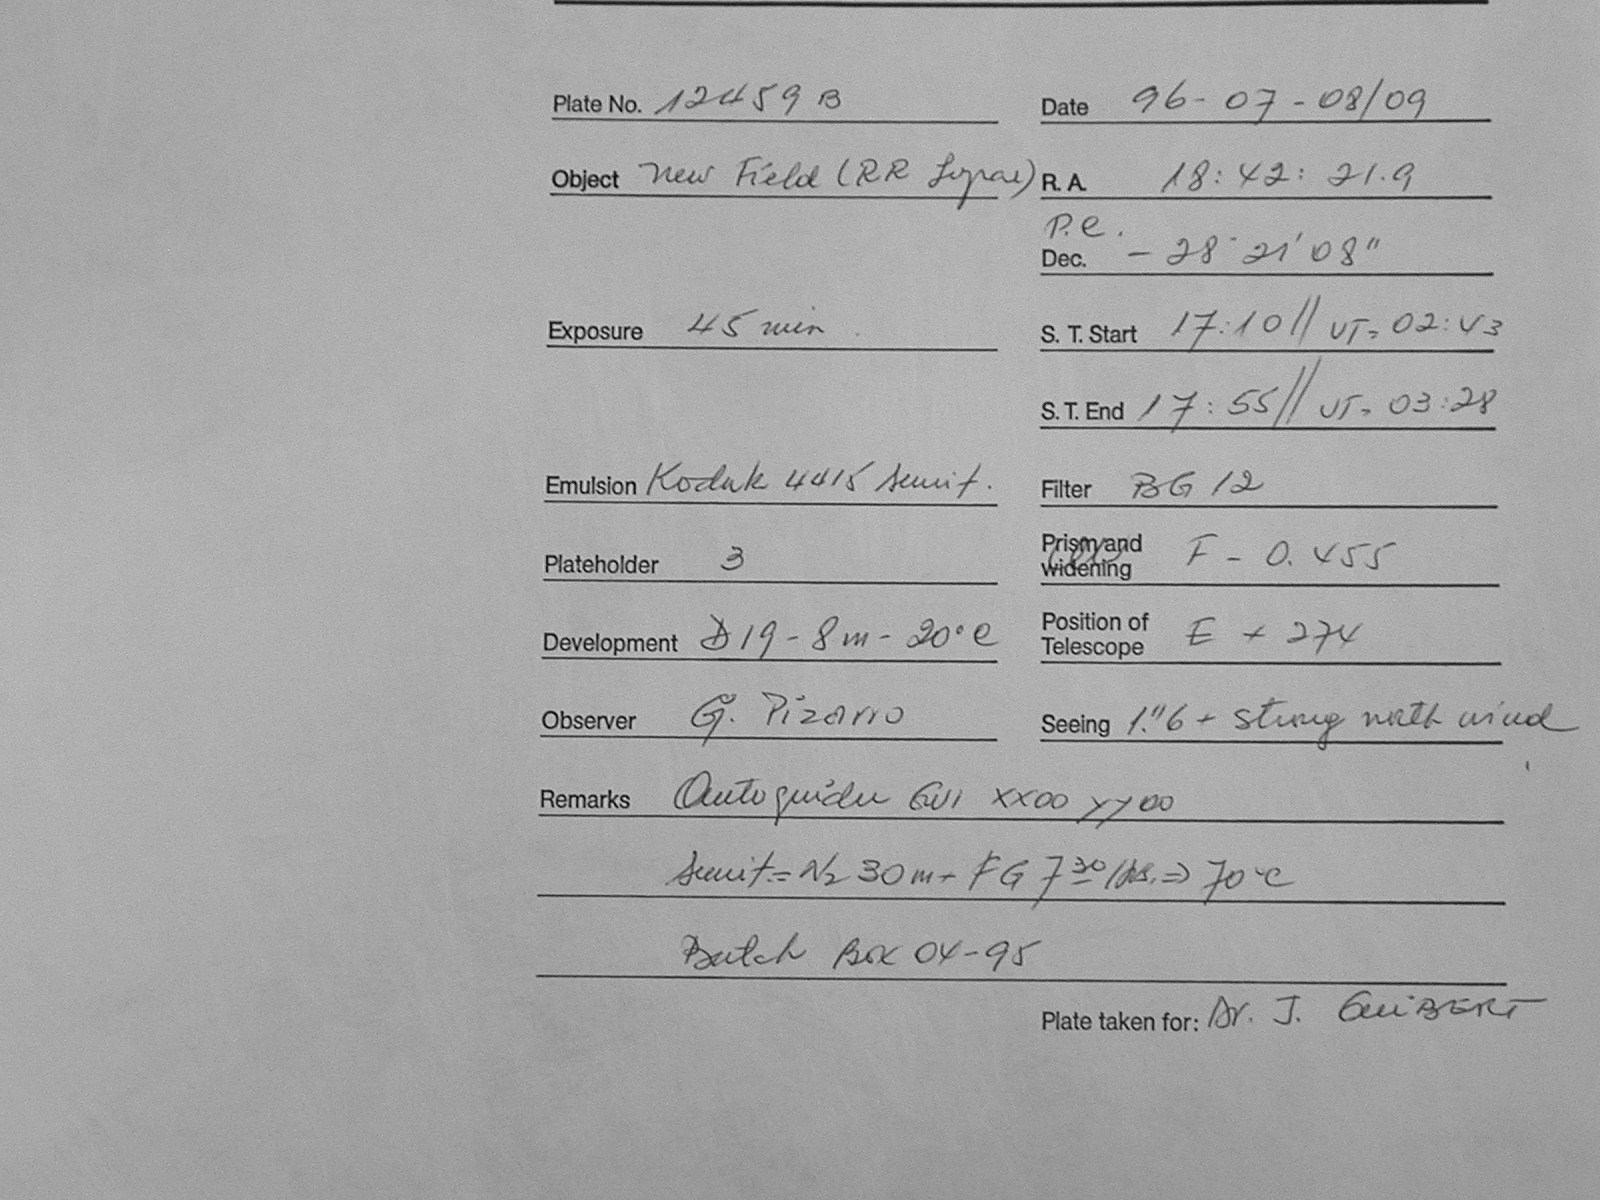 Plate No. 12459 B Date 96-07-08/09
Object New Field (RR Lyrae) R. A. 18: 42: 21.9
P.e.
Dec. - 28° 21' 08"
Exposure 45 min S. T. Start 17:10 // UT= 02:43
S. T. End 17:55 // UT= 03:28
Emulsion Kodak 4415 Sensit. Filter BG 12
Plateholder 3 Prism and widening F - 0.455
Development D19 - 8m - 20°C Position of Telescope E + 274
Observer G. Pizarro Seeing 1."6 + strong north wind
Remarks Autoguider GUI XX00 YY00
Sensit.= N2 30m + FG 7 30 /hrs. => 70°C
Batch Box 04-95
Plate taken for: Dr. J. GUIBERT